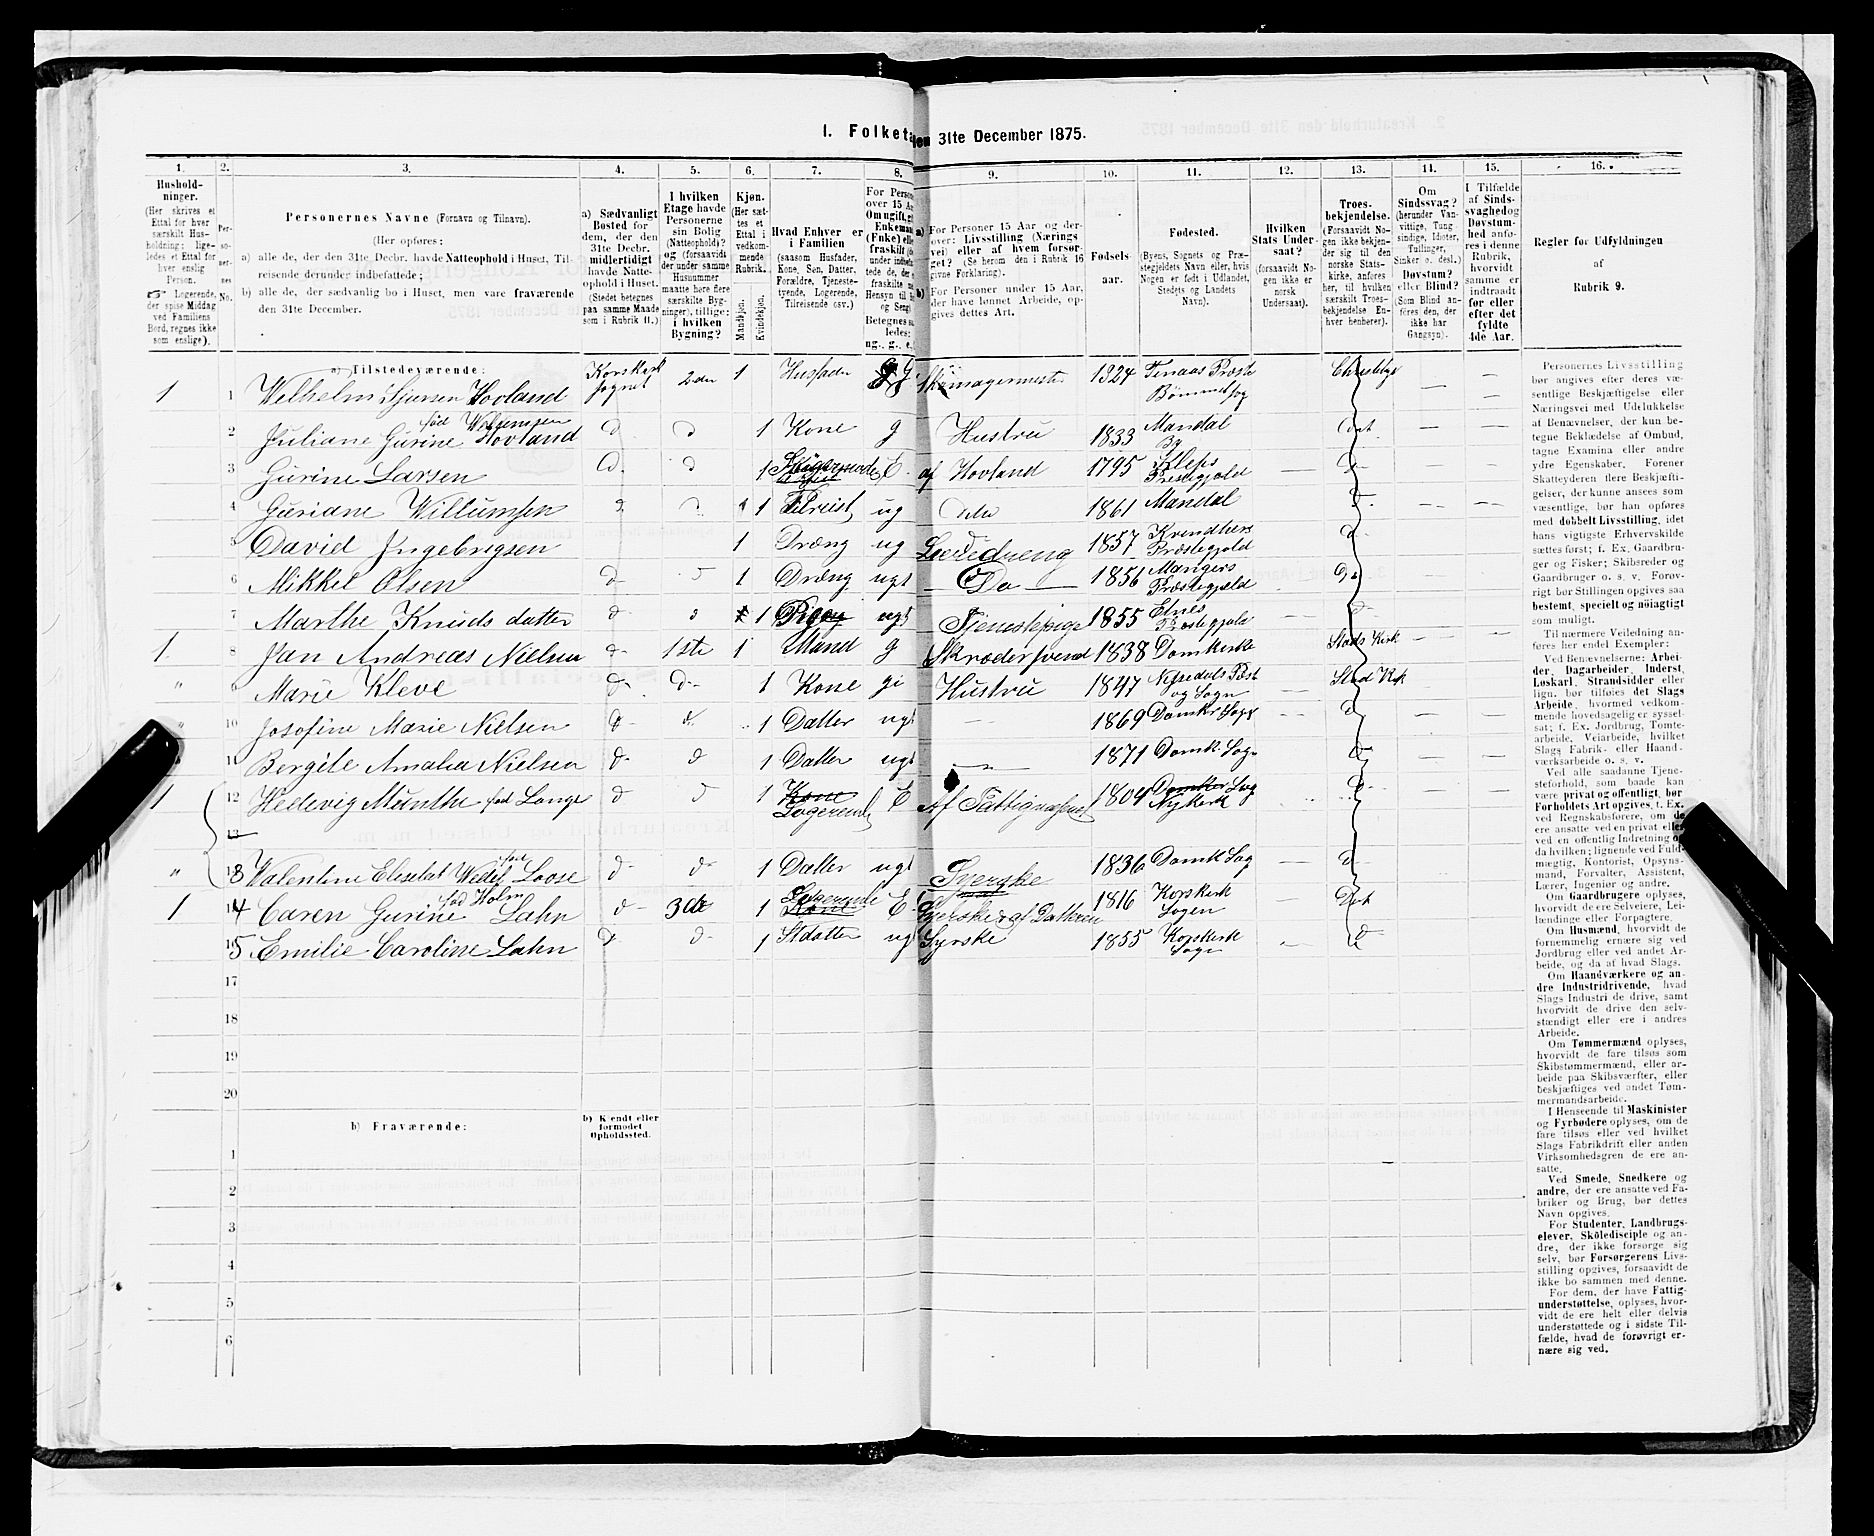 1. Folketæ
den 31te December 1875.
1. 2. 3. 4. 5. 6. 7. 8. 9. 10. 11. 12. 13. 14. 15. 16.
Hushold-
ninger.
(Her skrives et
Ettal for hver
særskilt Hus-
holdning; lige-
ledes et Ettal for
hver enslig
Person.
☞ Logerende,
der spise Middag
ved Familiens
Bord, regnes ikke
som enslige).
Per-
so-
ner-
nes
No.
Personernes Navne (Fornavn og Tilnavn).
(Her opføres:
a) alle de, der den 31te Decbr. havde Natteophold i Huset, Til-
reisende derunder indbefattede;
b) alle de, der sædvanlig bo i Huset, men vare fraværende
den 31te December.
a) Sædvanligt
Bosted for
dem, der den
31te Decbr.
midlertidigt
havde Natte-
ophold i Huset.
(Stedet betegnes
paa samme Maade
som i Rubrik 11.)
I hvilken
Etage havde
Personerne
sin Bolig
(Natteophold)?
og (forsaavidt
der under samme
Husnummer
maatte høre flere
særskilte Byg-
ninger), tillige:
i hvilken
Bygning?
Kjøn.
(Her sæt-
tes et
Ettal i
vedkom-
mende
Rubrik.)
Mandkjøn.
Kvindekjøn.
Hvad Enhver er
i Familien
(saasom Husfader,
Kone, Søn, Datter,
Forældre, Tjeneste-
tyende, Logerende,
Tilreisende osv.)
For Person
over 15 Aa
Om ugift, gi
Enkeman
(Enke) elle
fraskilt (de
under indbefat-
tede de, der e
fraskilte
Hensyn til B
og Seng)
Betegnes saa-
ledes:
ug., g., e.,
a) For Personer 15 Aar og der-
over: Livsstilling (Nærings
vei) eller af hvem forsør-
get? (Se herom den i Rubrik 16
givne Forklaring).
b) For Personer under 15 Aar,
der have lønnet Arbeide, op-
gives dettes Art.
Fødsels-
aar.
Fødested.
(Byens, Sognets og Præ-
stegjeldets Navn eller, hvis
Nogen er født i Udlandet,
Stedets og Landets
Navn).
Hvilken
Stats Under-
saat?
(forsaavidt No-
gen ikke er
norsk
Undersaat).
Troes-
bekjendelse.
(Forsaavidt No-
gen ikke bekjen-
der sig til den
norske Stats-
kirke, anføres
her, til hvilken
særskilt Troes-
bekjendelse En-
hver henhører).
Om
Sindssvag?
(herunder Van-
vittige, Tung-
sindige, Idioter,
Tullinger,
Sinker o. desl.)
Døvstum?
eller Blind?
(Som Blind an-
føres den, der
ikke har
Gangsyn).
I Tilfælde
af Sinds-
svaghed og
Døvstum-
hed anfø-
res i denne
Rubrik,
hvorvidt
samme er
indtraadt
før eller
efter det
fyldte
4de Aar.
Regler for Udfyldningen
af
Rubrik 9.
a) Tilstedeværende:
1 1 Welhelm Sjursen Hovland Korskirk sognet 2den 1 Husfader g Skomagermester 1824 Fenaas Præste Bømmel sog
2 Juliane Gurine Hovland d d 1 Kone g Hustru 1833 Mandal By
3 Gurine Larsen d d 1 E af Hovland 1795 Kleps Prestegjeld
4 Guriane Willumsen d d 1 Tilreist ug 1861 Mandal
5 David Ingebrigsen 1 Dræng ug 1857 Præstegjeld
6 Mikkel Olsen d 1 Dræng ugt Do 1856 Mangers Præstegjeld
7 Marthe Knuds datter d d 1 ugt Tjenestepige 1855 Etnes Præstegjeld
1 8 Jan Andreas Nielsen d 1ste 1 Mand g Skrædersvend 1838 Domkerke Stads Kirk
" 9 Marie Kleve d d 1 Kone gi Hustru 1847 og Sogn Stad Kirk
" 10 Josefine Marie Nielsen d 1 Datter ugt — 1869 Domkr Sogn
11 Bergite Amalia Nielsen d d 1 Datter ugt — 1871 Domk. Sogn
1 12 Hedevig Munthe fød Lange d d 1 Kone Logerende E Af 1804 Domker Sog Nykerk
13
" 13 Valentine Elisebat Wedel Loose d d 1 Datter ugt Syerske 1836 Domk Sog
1 14 Caren Gurine Lahn fød Holm d 3de 1 Logerende Kone E Syerske af Dattren 1816 Korskirk Sogen
15 Emilie Caroline Lahn d d 1 Datter ugt Syrske 1855 Korskirk Sogn
17
18
19
20
b) Fraværende:
b) Kjendt eller
formodet
Opholdssted.
1
2
3
4
5
6
Personernes Livsstilling
bør angives efter deres væ-
sentlige Beskjæftigelse eller
Næringsvei med Udelukkelse
af Benævnelser, der kun be-
tegne Beklædelse af Ombud,
tagne Examina eller andre
ydre Egenskaber. Forener
Skatteyderen flere Beskjæfti-
gelser, der kunne ansees som
væsentlige, bør han opføres
med dobbelt Livsstilling, idet
hans vigtigste Erhvervskilde
sættes først; f. Ex. Gaardbru-
ger og Fisker; Skibsreder og
Gaardbruger o. s. v. Forøv-
rigt bør Stillingen opgives saa
bestemt, specielt og nöiagtigt
som muligt.
Til nærmere Veiledning an-
føres her endel Exempler:
Ved Benævnelserne: Arbei-
der, Dagarbeider, Inderst,
Løskarl, Strandsidder eller
lign. bør tilføies det Slags
Arbeide, hvormed vedkom-
mende hovedsagelig er syssel-
sat; f. Ex. Jordbrug, Tomte-
arbeide, Veiarbeide, hvilket
Slags Fabrik- eller Haand-
værksarbeide o. s. v.
Ved alle saadanne Tjene-
steforhold, som baade kan
være privat og offentligt, bør
Forholdets Art opgives, t. Ex.
ved Regnskabsførere, om de
ere ansatte ved en privat eller
ved en offentlig Indretning og
da hvilken; lignende ved Fuld-
mægtig, Kontorist, Opsyns-
mand, Forvalter, Assistent,
Lærer, Ingeniør og andre.
Om Gaardbrugere oplyses,
hvorvidt de ere Selveiere, Lei-
lændinge eller Forpagtere.
Om Husmænd, hvorvidt de
fornemmelig ernære sig ved
Jordbrug eller ved andet Ar-
beide, og da af hvad Slags.
Om Haandværkere og an-
dre Industridrivende, hvad
Slags Industri de drive, samt
hvorvidt de drive den selv-
stændigt eller ere i andres
Arbeide.
Om Tømmermænd oplyses,
hvorvidt de fare tilsøs som
Skibstømmermænd, eller ar-
beide paa Skibsværfter, eller
beskjæftiges ved andet Tøm-
mermandsarbeide.
I Henseende til Maskinister
og Fyrbødere oplyses, om de
fare tilsøs eller ved hvilket
Slags Fabrikdrift eller anden
Virksomhedsgren de ere an-
satte.
Ved Smede, Snedkere og
andre, der ere ansatte ved Fa-
briker og Brug, bør dettes
Navn opgives.
For Studenter, Landbrugs-
elever, Skoledisciple og an-
dre, der ikke forsørge sig
selv, bør Forsørgerens Livs-
stilling opgives, forsaavidt de
ikke bo sammen med denne.
For dem, der have Fattig-
understøttelse, oplyses, hvor-
vidt de ere helt eller delvis
understøttede og i sidste Til-
fælde, hvad de forøvrigt er-
nære sig ved.